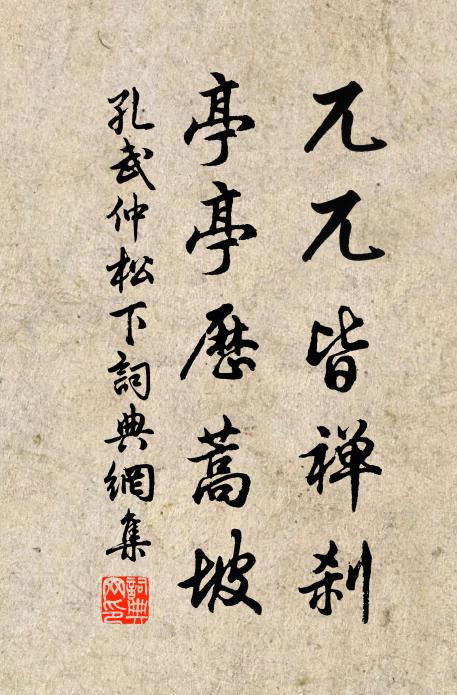 兀兀皆禅刹
亭亭歷蒿坡
孔武仲松下詞典網集
詞典網印